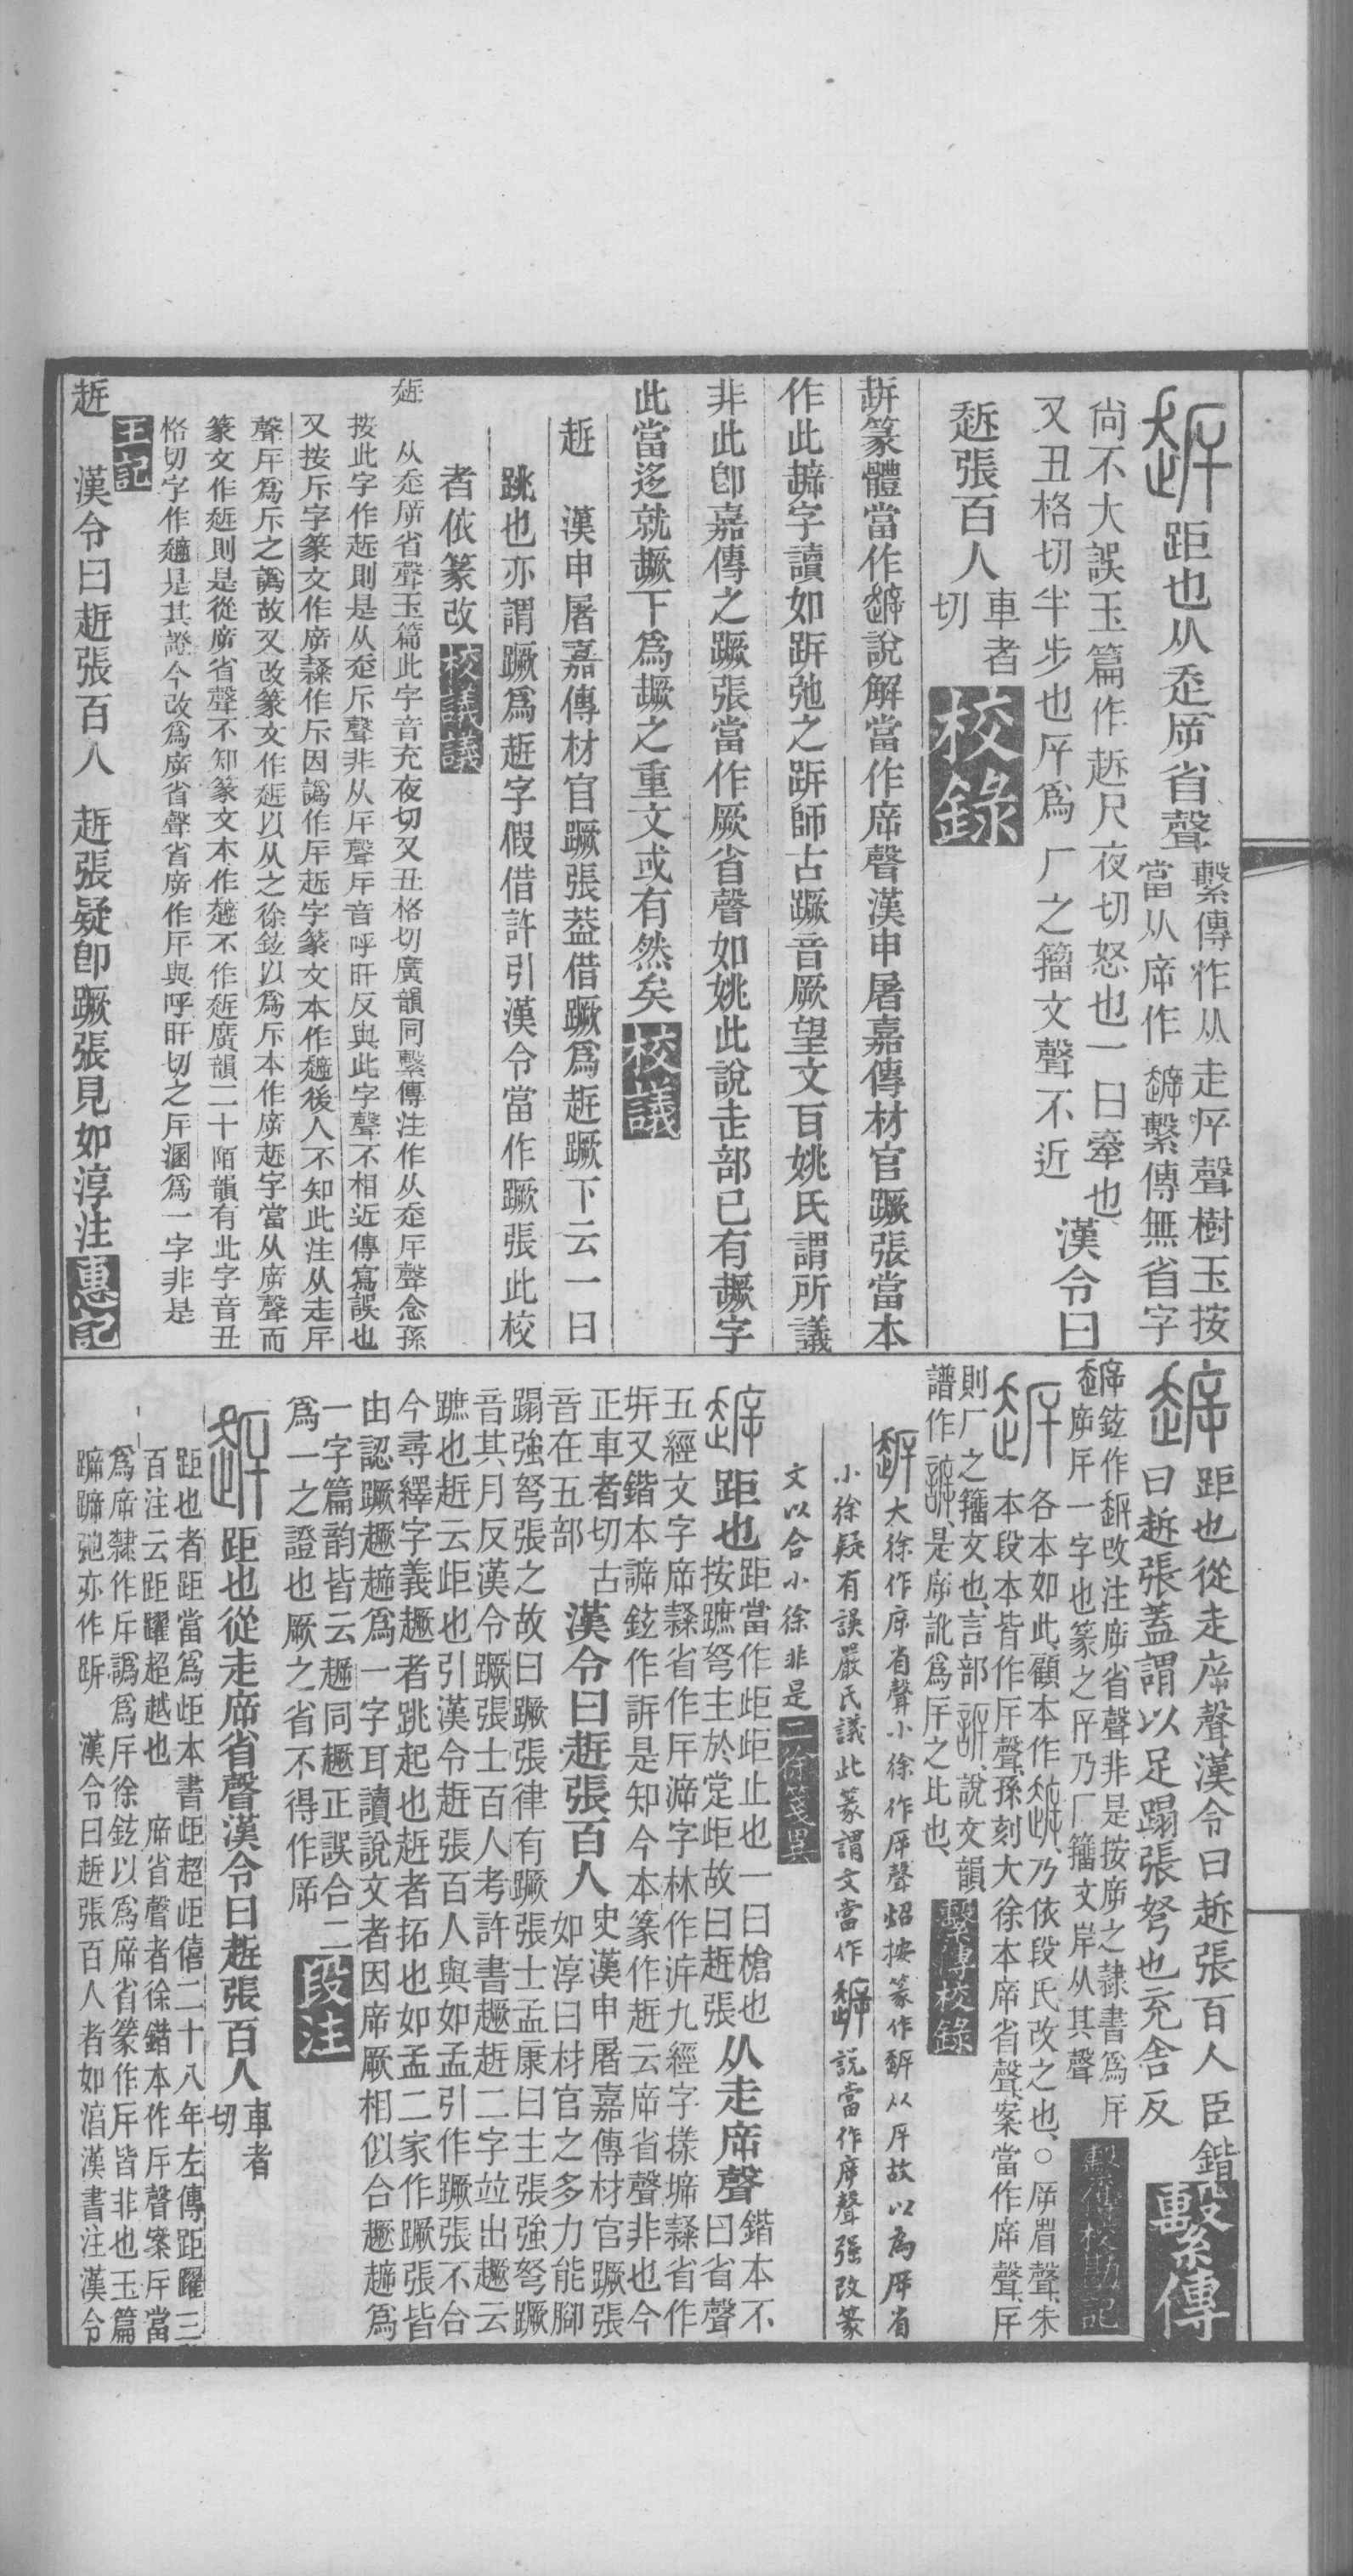 距也从赱㡿省聲
繫傳作从走㡿聲樹玉按
當从㡿作繫傳無省字
尙不大誤玉篇作趀尺夜切怒也一曰牽也
又丑格切半步也㡿爲厂之籒文聲不近
漢令曰
趀張百人
車者
切
校錄
趀篆體當作說解當作㡿聲漢申屠嘉傳材官蹶張當本
作此字讀如跅弛之跅師古蹶音厥望文百姚氏謂所議
非此卽嘉傳之蹶張當作厥省聲如姚此說走部已有趣字
此當迻就趣下爲趣之重文或有然矣
校議
趀 漢申屠嘉傳材官蹶張葢借蹶爲趀蹶下云一曰
跳也亦謂蹶爲趀字假借許引漢令當作蹶張此校
者依篆改
校議議
趀 从赱㡿省聲玉篇此字音充夜切又丑格切廣韻同繫傳注作从赱厈聲念孫
按此字作趀則是从赱斥聲非从厈聲厈音呼旰反與此字聲不相近傳寫誤也
又按斥字篆文作㡿隸作斥因譌作厈趀字篆文本作後人不知此注从走厈
聲厈爲斥之譌故又改篆文作以从之徐鉉以爲斥本作㡿趀字當从㡿聲而
篆文作則是從㡿省聲不知篆文本作不作廣韻二十陌韻有此字音丑
格切字作是其證今改爲㡿省聲省㡿作厈與呼旰切之厈溷爲一字非是
王記
趀 漢令曰趀張百人 趀張疑卽蹶張見如淳注
惠記
距也從走㡿聲漢令曰趀張百人臣鍇
曰趀張蓋謂以足蹋張弩也充舍反
繫傳
鉉作改注㡿省聲非是按㡿之隸書爲厈
㡿厈一字也篆之厈乃厂籒文岸从其聲
繫傳校勘記
各本如此顧本作乃依段氏改之也○㡿省聲朱
本段本皆作厈聲孫刻大徐本㡿省聲案當作㡿聲厈
則厂之籒文也言部說文韻
譜作是㡿訛爲厈之比也
繫傳校錄
大徐作㡿省聲小徐作厈聲炤按篆作从厈故以為㡿省
小徐疑有誤嚴氏議此篆謂文當作說當作㡿聲强改篆
文以合小徐非是
二徐箋異
距也
距當作歫歫止也一曰槍也
按蹠弩主於定歫故曰趀張
从走㡿聲
鍇本不
曰省聲
五經文字㡿隸省作厈字林作九經字樣隸省作
又鍇本鉉作訴是知今本篆作趀云㡿省聲非也今
正車者切古
音在五部
漢令曰趀張百人
史漢申屠嘉傳材官蹶張
如淳曰材官之多力能腳
蹋強弩張之故曰蹶張律有蹶張士孟康曰主張強弩蹶
音其月反漢令蹶張士百人考許書趣趀二字竝出趣云
蹠也趀云歫也引漢令趀張百人與如孟引作蹶張不合
今尋繹字義趣者跳起也趀者拓也如孟二家作蹶張皆
由認蹶趣爲一字耳讀說文者因㡿厥相似合趣爲
一字篇韵皆云同趣正誤合二
爲一之證也厥之省不得作㡿
段注
距也從走㡿省聲漢令曰趀張百人
車者
切
距也者距當爲歫本書歫超歫僖二十八年左傳距躍三
百注云距躍超越也 㡿省聲者徐鍇本作厈聲案厈當
爲㡿隸作斥譌爲厈徐鉉以爲㡿省篆作厈皆非也玉篇
弛亦作跅 漢令曰趀張百人者如淳漢書注漢令